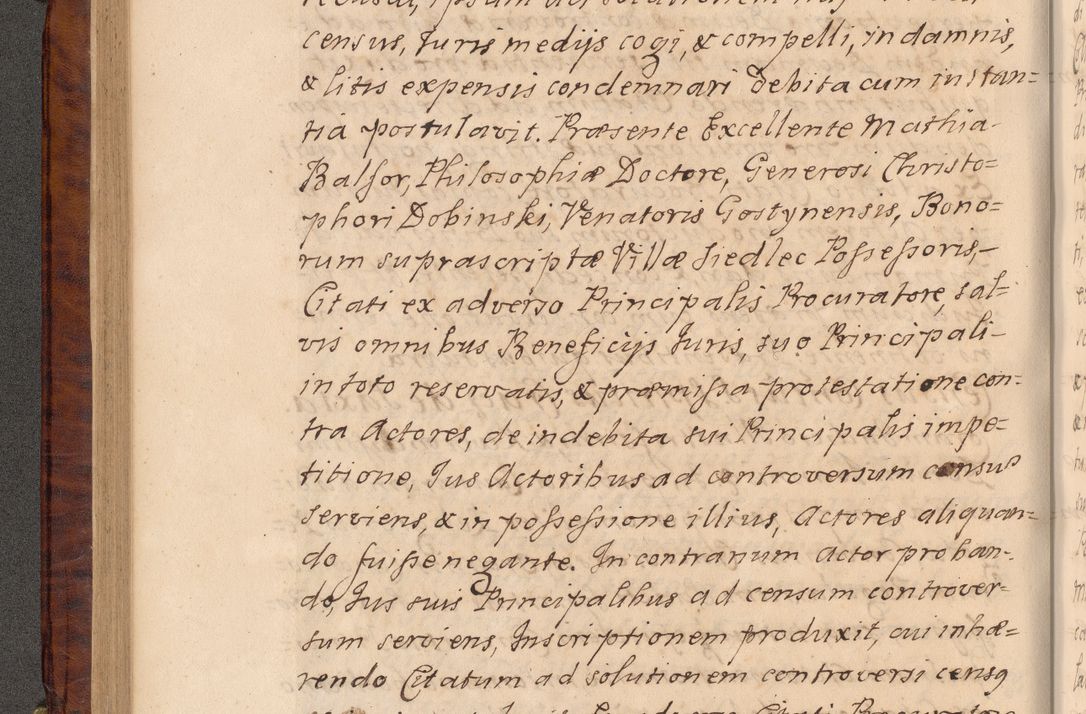 census, Juris medijs cogi, & compelli, in damnis,
& litis expensis condemnari debita cum instan=
tia postulavit. Præsente Excellente Mathia
Balsor, Philosophiæ Doctore, Generosi Christo=
phori Dobinski, Venatoris Gostynensis, Bono=
rum suprascriptæ Villæ Siedlec Possessoris,
Citati ex adverso Principalis Procuratore, sal=
vis omnibus Beneficijs Juris, suo Principali
in toto reservatis, & præmissa protestatione con=
tra Actores, de indebita sui Principalis impe=
titione, Jus Actoribus ad controversum censum
serviens, & in possessione illius, Actores aliquan=
do fuisse negante. In contrarium Actor proban=
do, Jus suis Principalibus ad censum controver=
sum serviens, Inscriptionem produxit, cui inhæ=
rendo Citatum ad solutionem controversi census